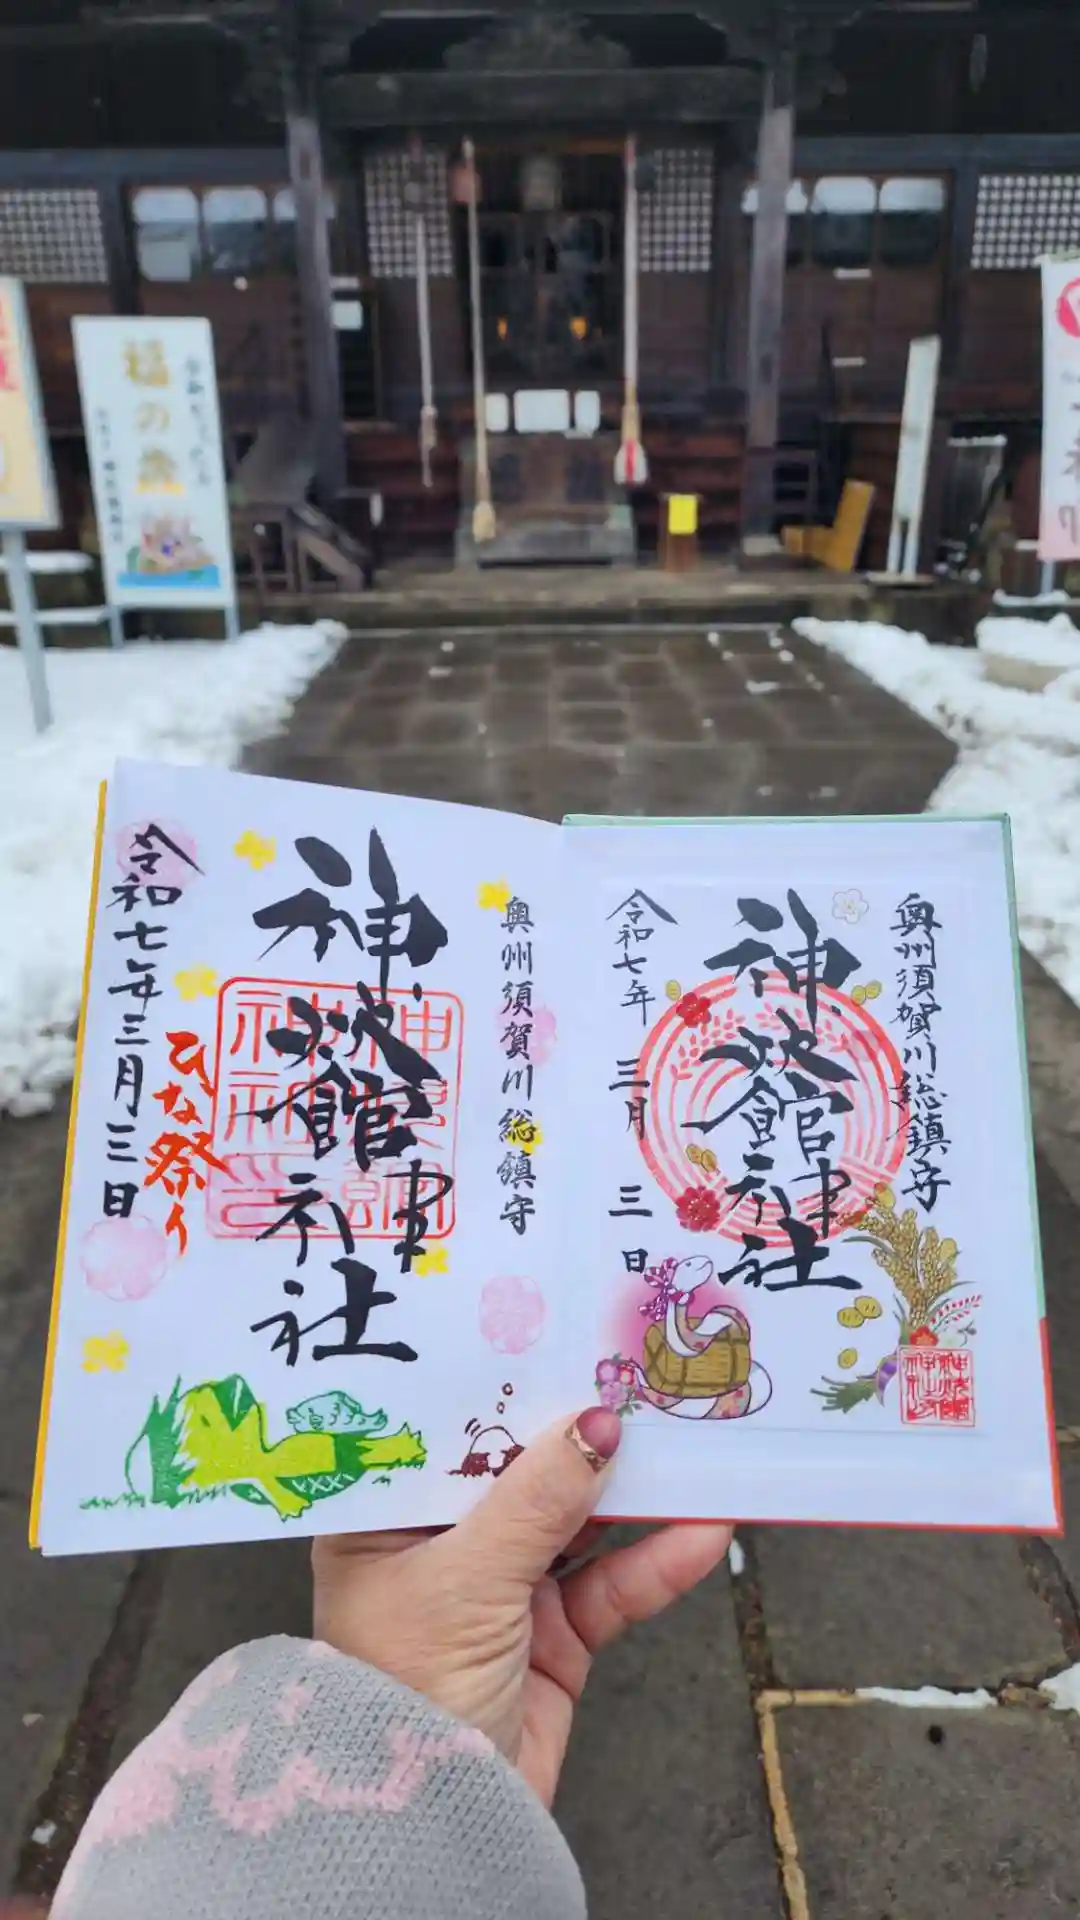 奥州須賀川総鎮守
神炊館神社
令和七年
三月
三日
奥州須賀川総鎮守
神炊館神社
ひな祭り
令和七年三月三日
福の